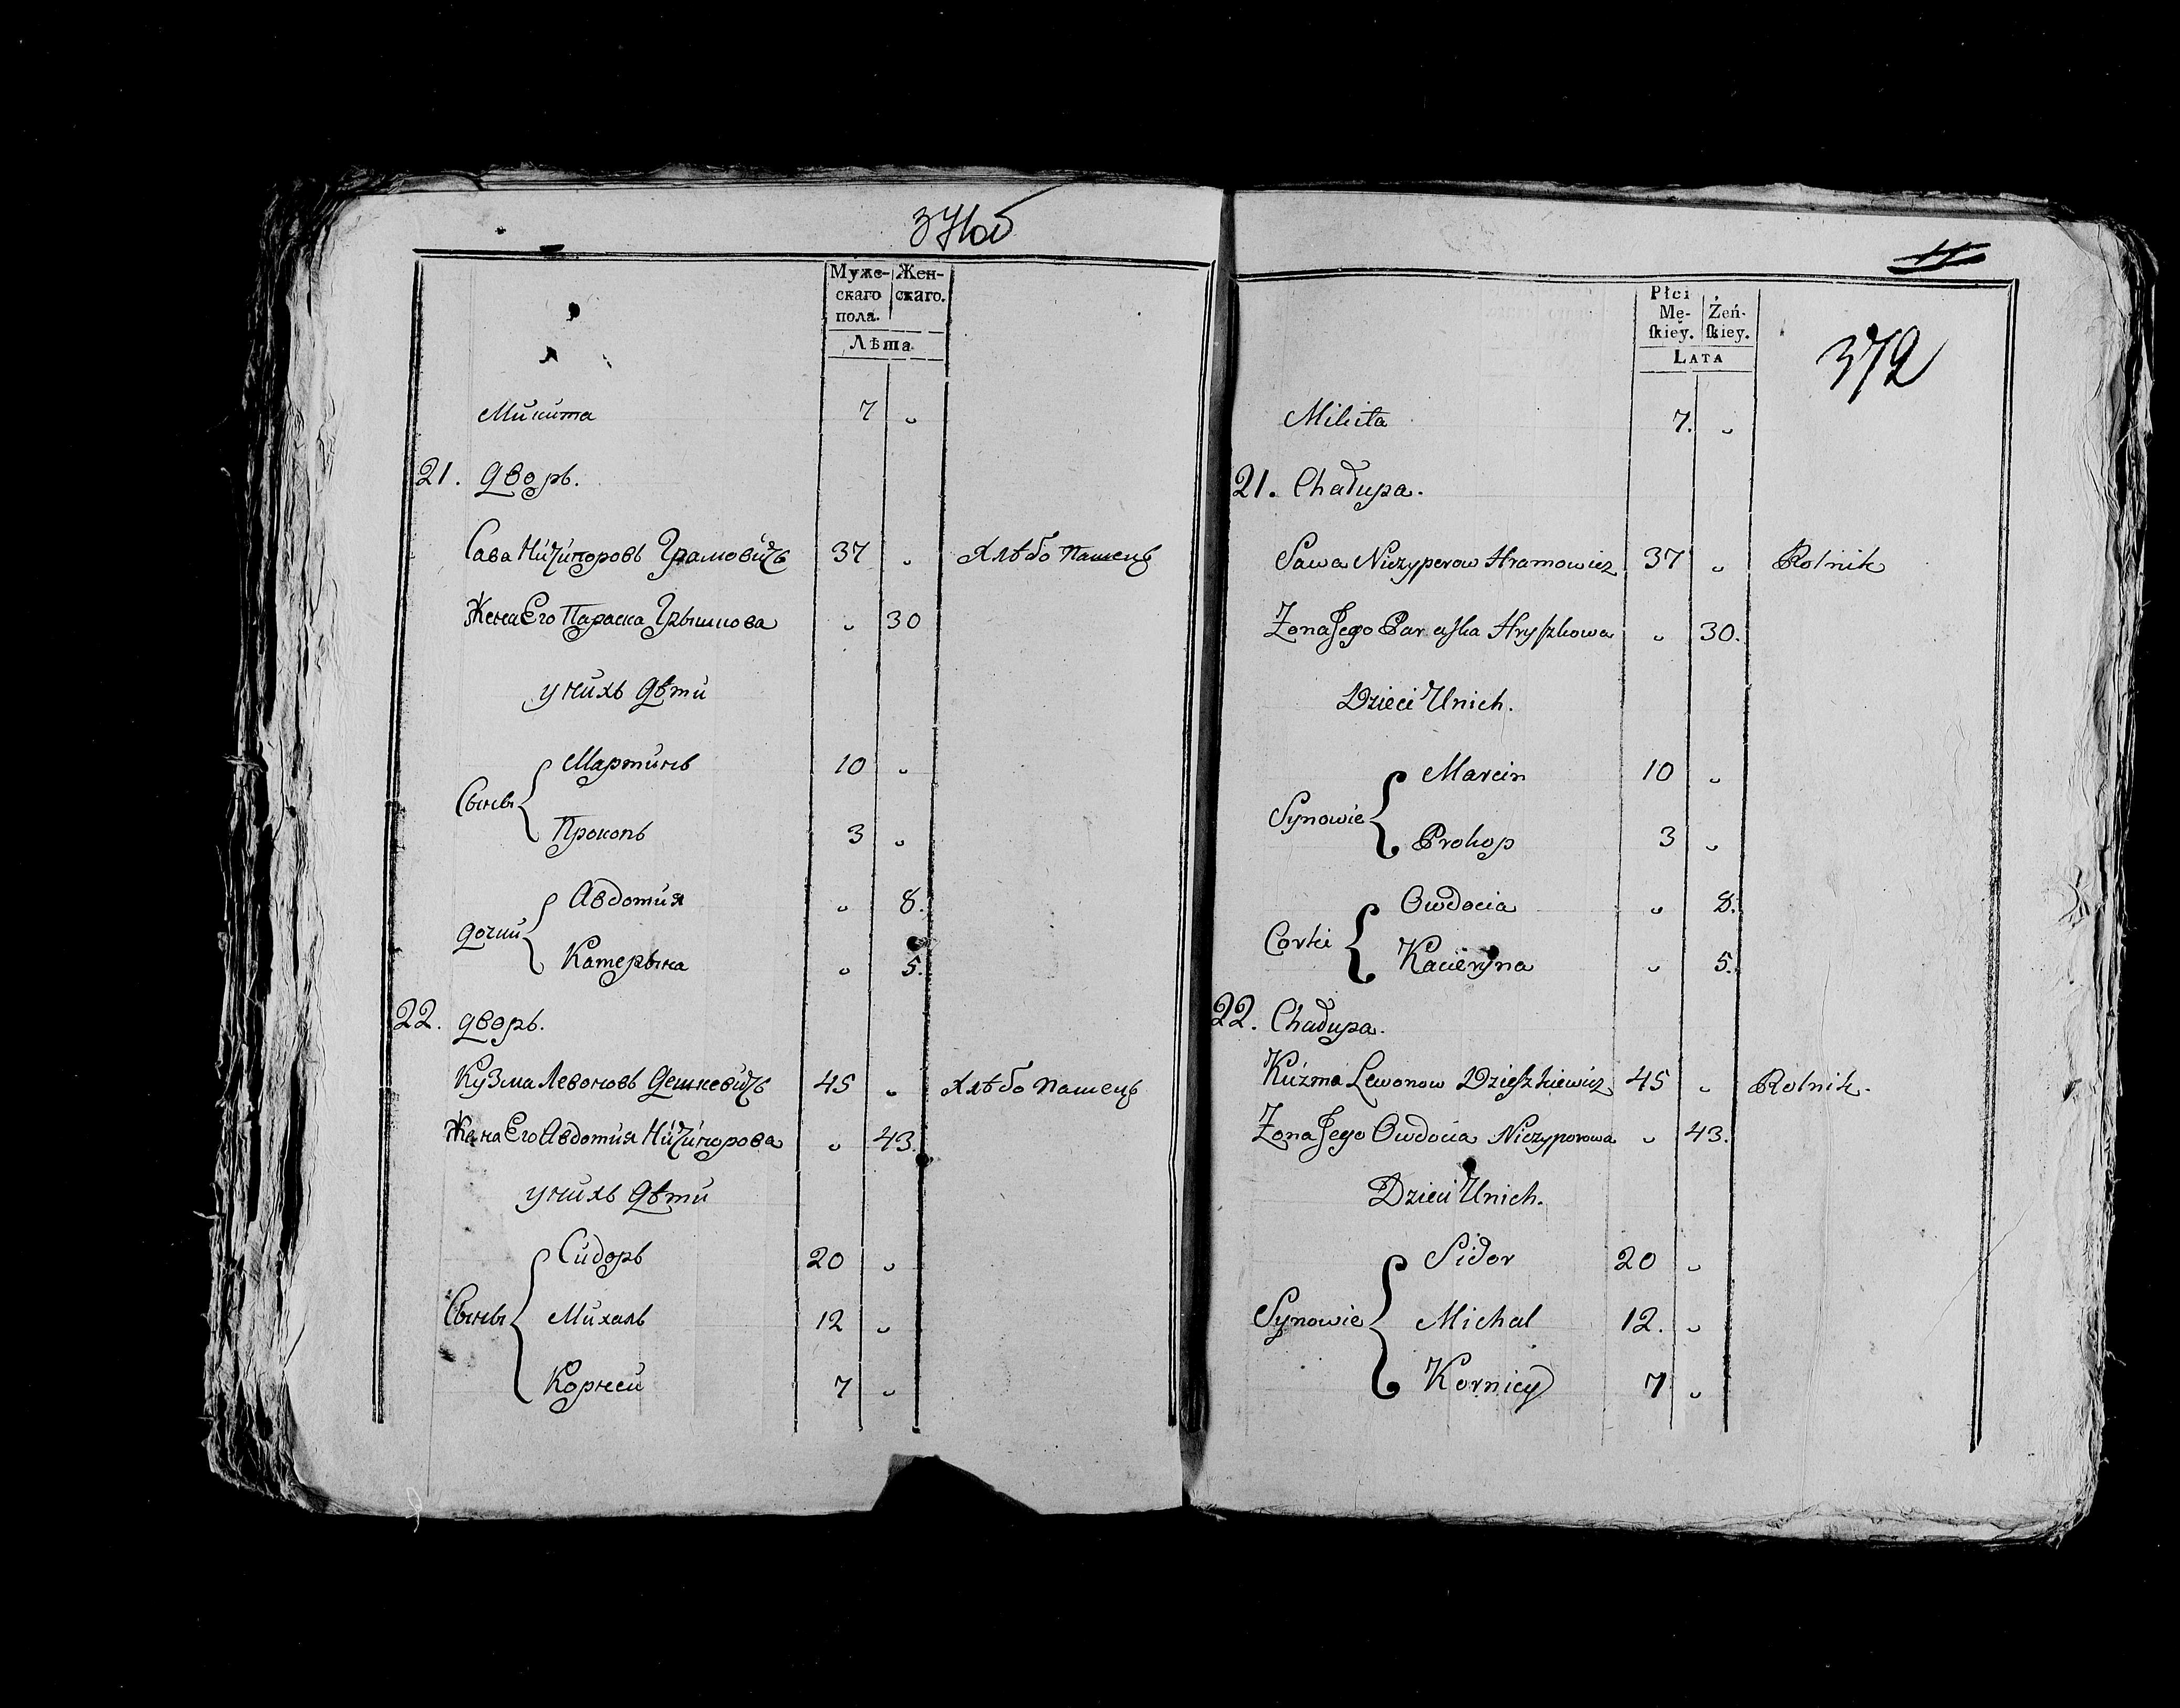 371об
Муже-
скаго
пола.
Жен-
скаго.
Лѣта
Микита 7 „
21. Дворъ.
Сава Ничипоровъ Грамовичъ 37 „ Хлѣбо пашецъ
Жена Его Параска Грышкова „ 30
у нихъ Дѣти
Сыны { Мартинъ 10 „
Прокопъ 3 „
Дочки { Авдотия „ 8.
Катерына „ 5.
22. дворъ.
Кузма Левоновъ Дешкевичъ 45 „ Хлѣбо пашецъ
Жена Его Авдотия Ничипорова „ 43.
у нихъ Дѣти
Сыны { Сидоръ 20 „
Михаль 12 „
Корней 7 „
11
372
Płci
Mę-
ſkiey.
Żeń-
ſkiey.
LATA
Mikita 7. „
21. Chałupa.
Sawa Niczyperow Hramowicz 37 „ Rolnik
Żona Jego Paraſka Hryſzkowa „ 30.
Dzieci Unich.
Synowie { Marcin 10 „
Prokop 3 „
Corki { Owdocia „ 8.
Kacieryna „ 5.
22. Chałupa.
Kuźma Lewonow Dzieſzkiewicz 45 „ Rolnik.
Żona Jego Owdocia Niczyporowa „ 43.
Dzieci Unich.
Synowie { Sidor 20 „
Michal 12. „
Korniey 7 „